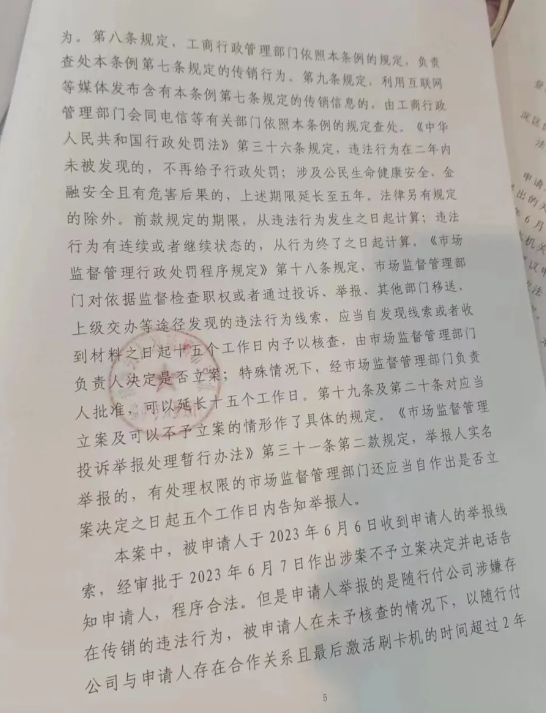 为。第八条规定，工商行政管理部门依照本条例的规定，负责
查处本条例第七条规定的传销行为。第九条规定，利用互联网
等媒体发布含有本条例第七条规定的传销信息的，由工商行政
管理部门会同电信等有关部门依照本条例的规定查处。《中华
人民共和国行政处罚法》第三十六条规定，违法行为在二年内
未被发现的，不再给予行政处罚；涉及公民生命健康安全、金
融安全且有危害后果的，上述期限延长至五年。法律另有规定
的除外。前款规定的期限，从违法行为发生之日起计算；违法
行为有连续或者继续状态的，从行为终了之日起计算。《市场
监督管理行政处罚程序规定》第十八条规定，市场监督管理部
门对依据监督检查职权或者通过投诉、举报、其他部门移送、
上级交办等途径发现的违法行为线索，应当自发现线索或者收
到材料之日起十五个工作日内予以核查，由市场监督管理部门
负责人决定是否立案；特殊情况下，经市场监督管理部门负责
人批准，可以延长十五个工作日。第十九条及第二十条对应当
立案及可以不予立案的情形作了具体的规定。《市场监督管理
投诉举报处理暂行办法》第三十一条第二款规定，举报人实名
举报的，有处理权限的市场监督管理部门还应当自作出是否立
案决定之日起五个工作日内告知举报人。
本案中，被申请人于 2023 年 6 月 6 日收到申请人的举报线
索，经审批于 2023 年 6 月 7 日作出涉案不予立案决定并电话告
知申请人，程序合法。但是申请人举报的是随行付公司涉嫌存
在传销的违法行为，被申请人在未予核查的情况下，以随行付
公司与申请人存在合作关系且最后激活刷卡机的时间超过 2 年